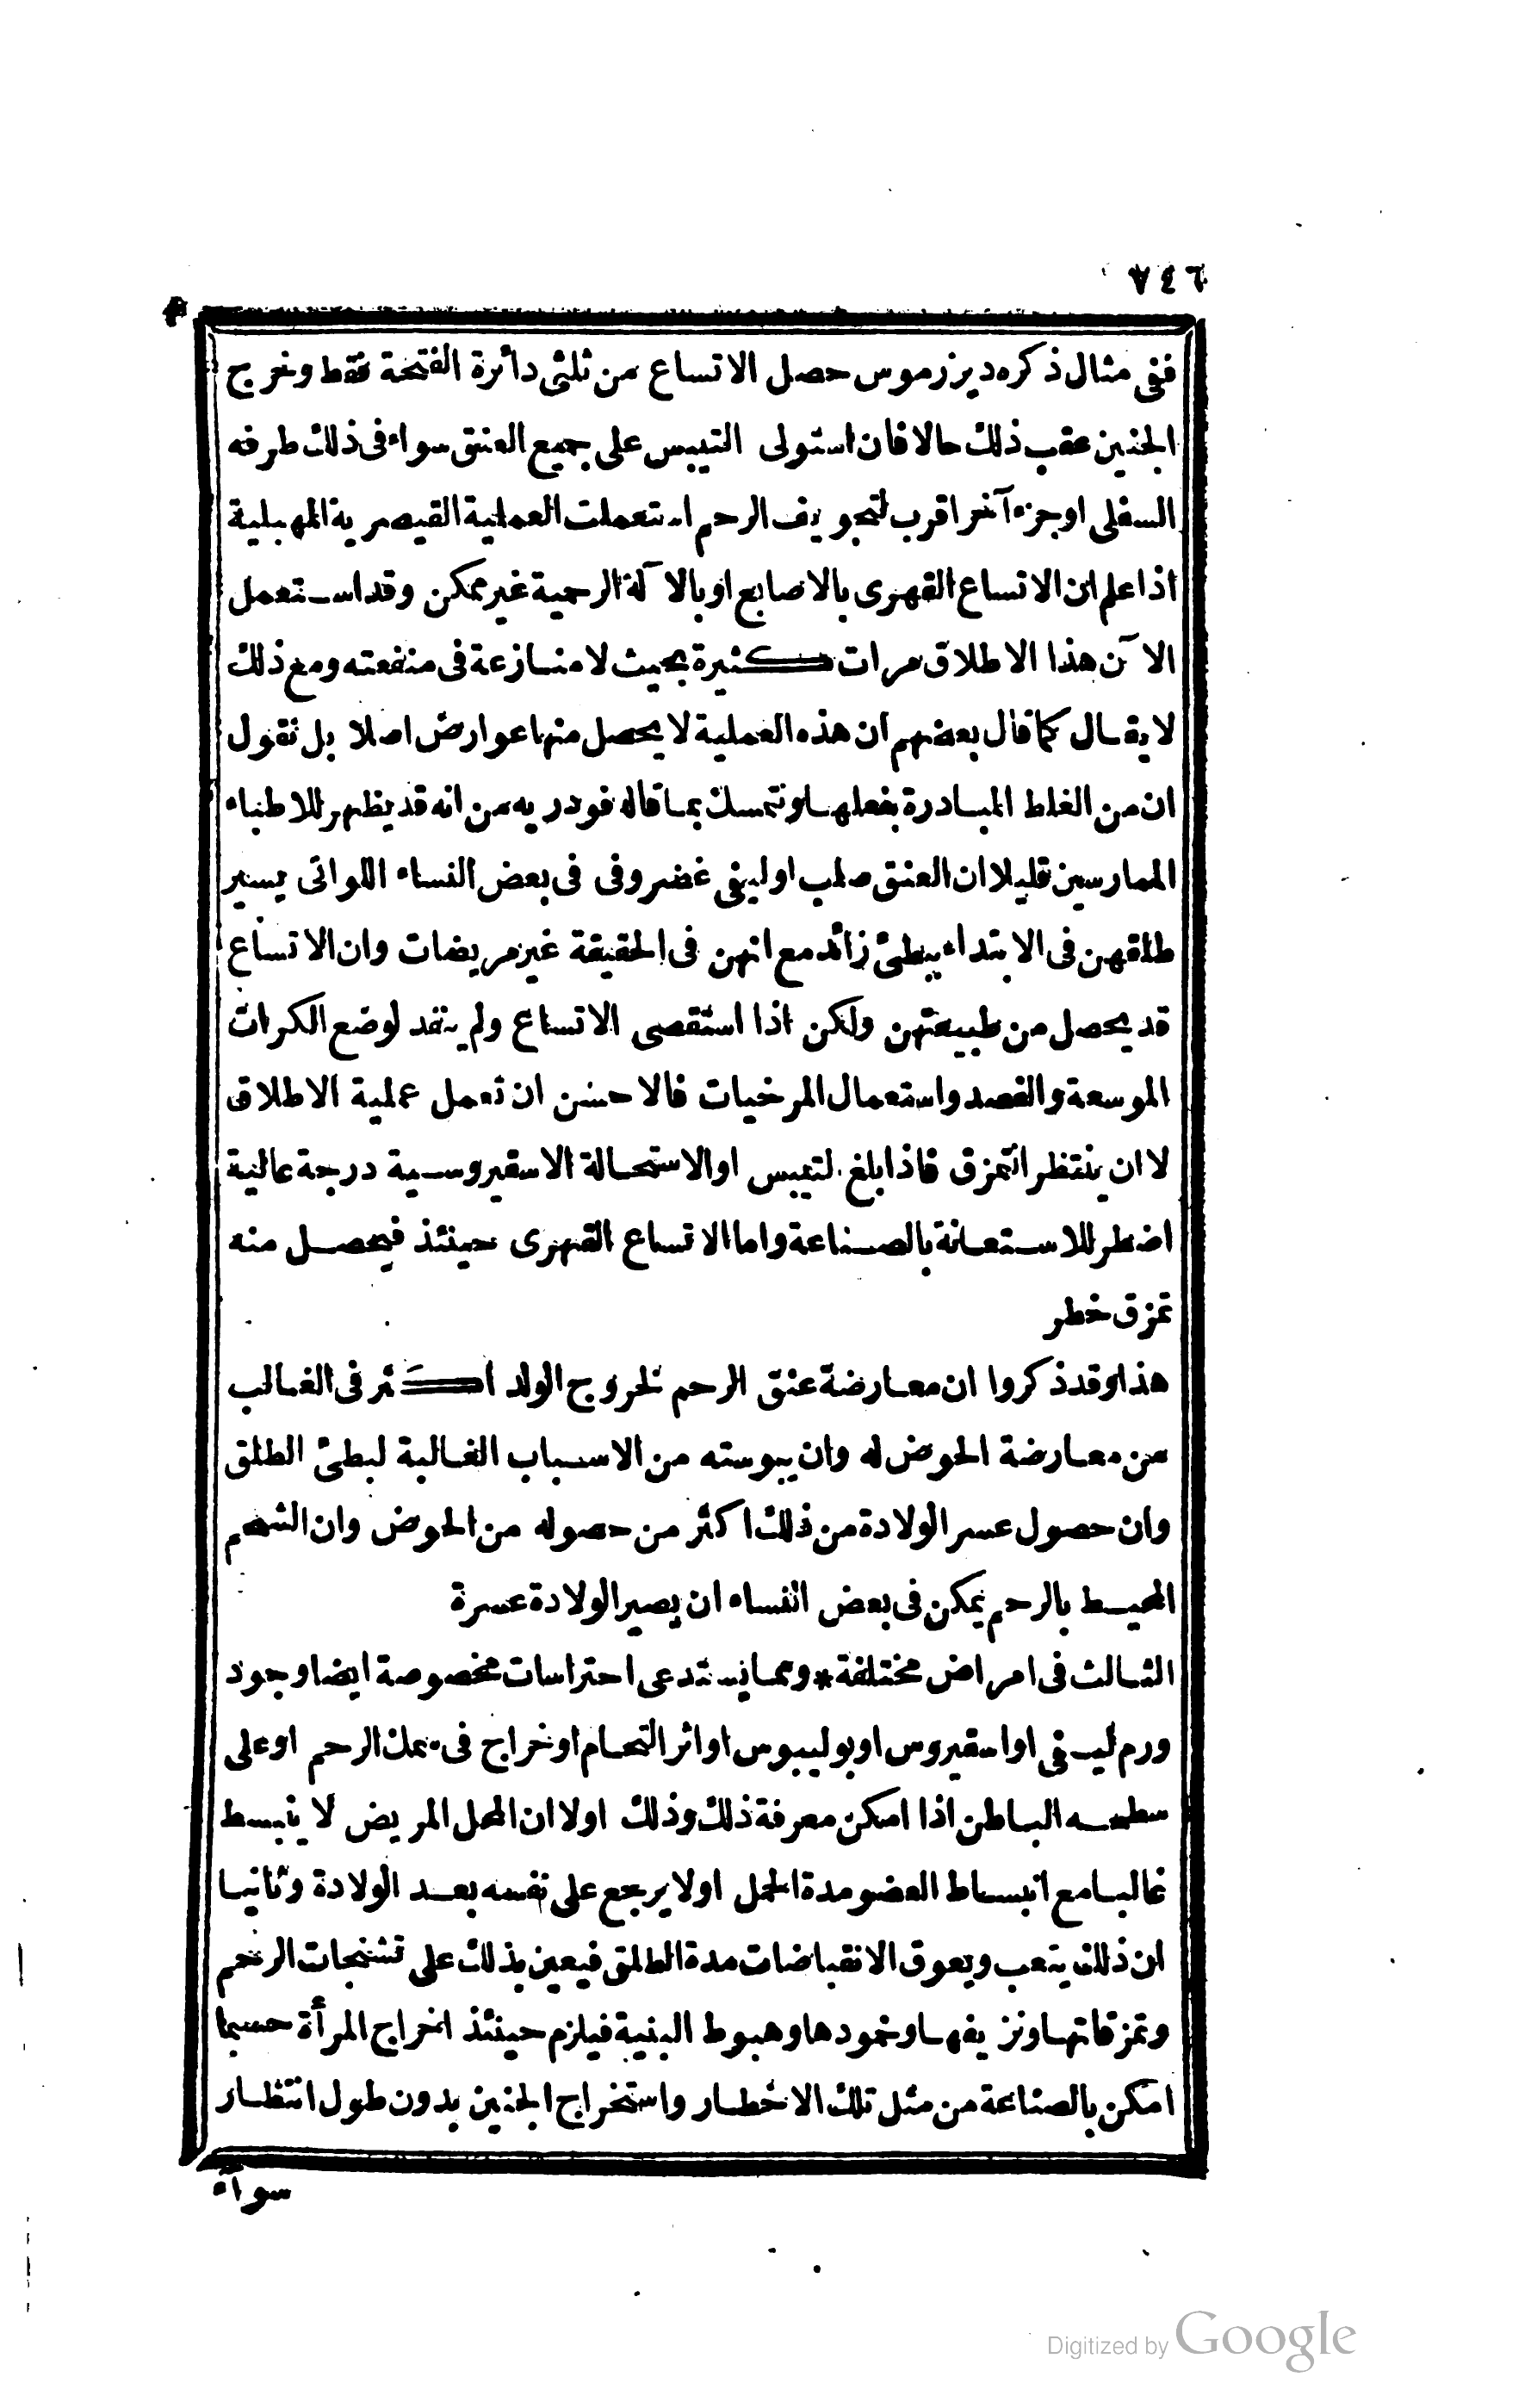 ٧٤٦
ففى مثال ذكره ديزرموس حصل الاتساع من ثلثى دائرة الفتحة فقط وخرج
الجنين عقب ذلك حالا فان استولى التيبس على جميع العنق سواء فى ذلك طرفه
السفلى اوجزء آخر اقرب لتجويف الرحم استعملت العملية القيصرية المهبلية
اذا علم ان الاتساع القهرى بالاصابع او بالآلة الرحمية غير ممكن وقد استعمل
الآن هذا الاطلاق مرات كثيرة بحيث لا منازعة فى منفعته ومع ذلك
لا يقال كما قال بعضهم ان هذه العملية لا يحصل منها عوارض اصلا بل نقول
ان من الغلط المبادرة بفعلها ونتمسك بما قاله فودريه من انه قد يظهر للاطباء
الممارسين قليلا ان العنق صلب اوليفى غضروفى فى بعض النساء اللواتى يسير
طلقهن فى الابتداء ببطئ زائد مع انهن فى الحقيقة غير مريضات وان الاتساع
قد يحصل من طبيعتهن ولكن اذا استقصى الاتساع ولم ينقد لوضع الكرات
الموسعة والفصد واستعمال المرخيات فالاحسن ان تعمل عملية الاطلاق
لا ان ينتظر التمزق فاذا بلغ التيبس او الاستحالة الاسقيروسية درجة عالية
اضطر للاستعانة بالصناعة واما الاتساع القهرى حينئذ فيحصل منه
تمزق خطر
هذا وقد ذكروا ان معارضة عنق الرحم لخروج الولد اكثر فى الغالب
من معارضة الحوض له وان يبوسته من الاسباب الغالبة لبطئ الطلق
وان حصول عسر الولادة من ذلك اكثر من حصوله من الحوض وان الشحم
المحيط بالرحم يمكن فى بعض النساء ان يصير الولادة عسرة
الثالث فى امراض مختلفة * ومما يستدعى احتراسات مخصوصة ايضا وجود
ورم ليفى او اسقيروس او بوليبوس او اثر التحام او خراج فى سمك الرحم او على
سطحه الباطن اذا امكن معرفة ذلك وذلك اولا ان المحل المريض لا ينبسط
غالبا مع انبساط العضو مدة الحمل او لا يرجع على نفسه بعد الولادة وثانيا
ان ذلك يتعب ويعوق الانقباضات مدة الطلق فيعين بذلك على تشنجات الرحم
وتمزقاتها ونزيفها وخمودها وهبوط البنية فيلزم حينئذ اخراج المرأة حسبما
امكن بالصناعة من مثل تلك الاخطار واستخراج الجنين بدون طول انتظار
سوآء
Digitized by Google